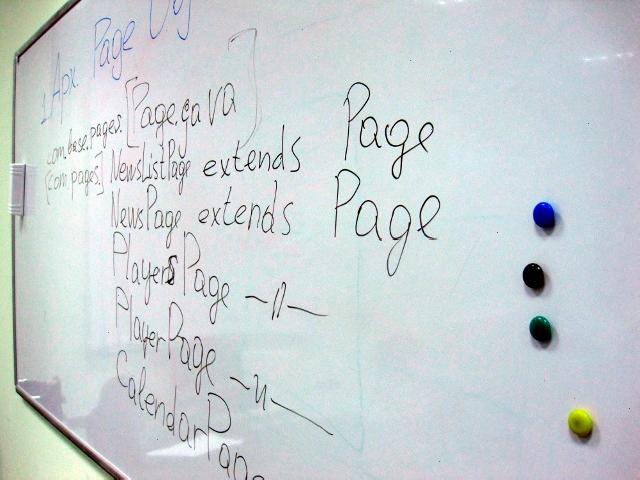 1. Арх. Page Obj
com.base.pages. [Page.java]
[com.pages] NewsListPage extends Page
NewsPage extends Page
PlayersPage —||—
PlayerPage —||—
CalendarPage